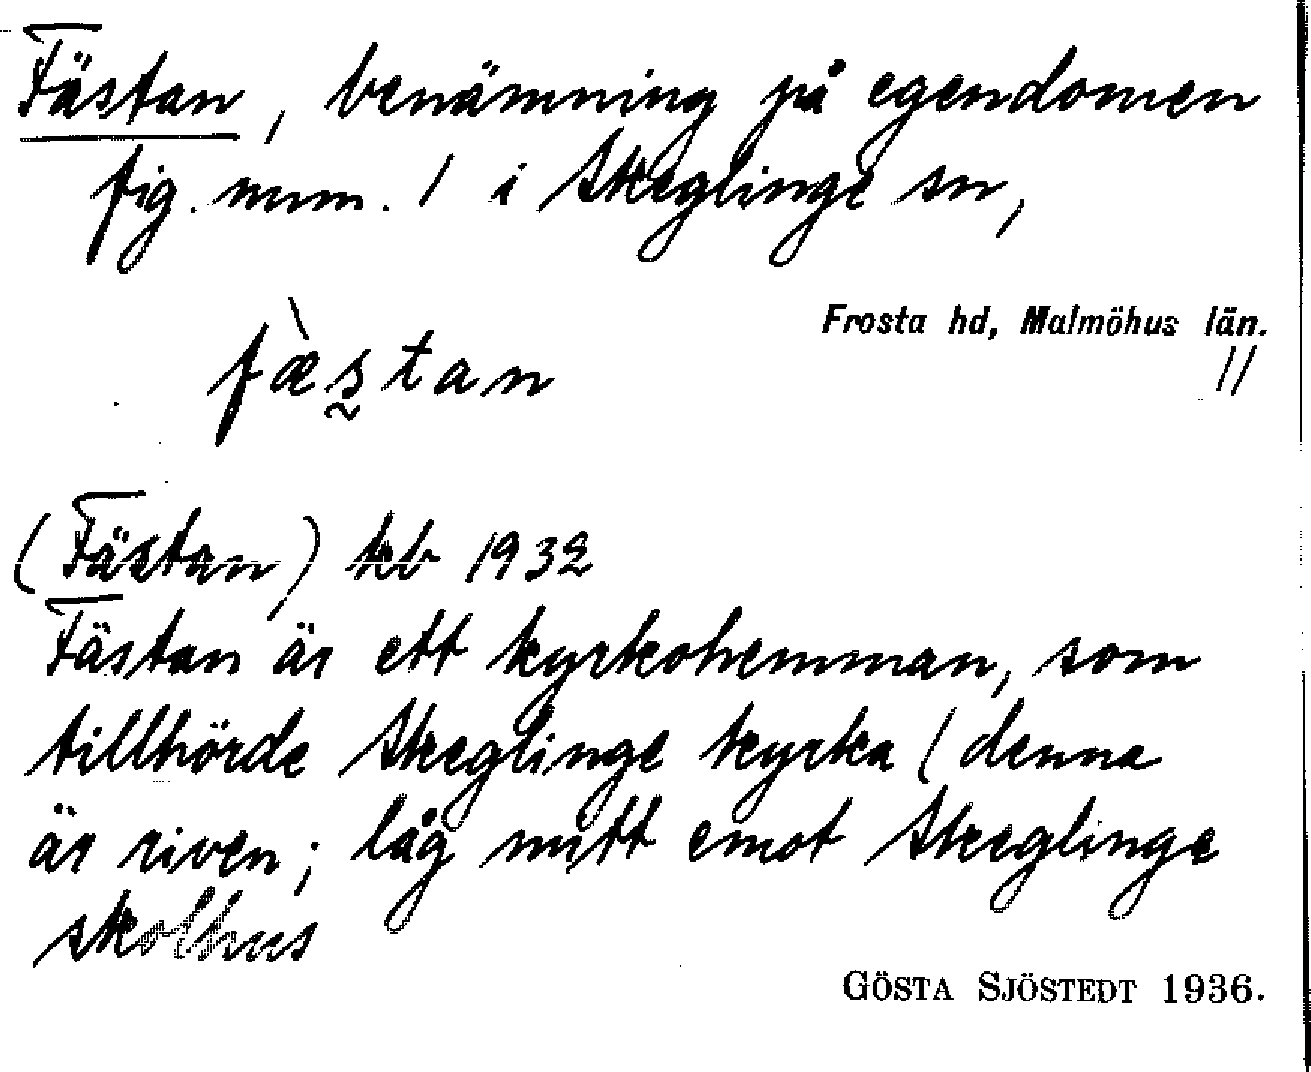 Fästan, benämning på egendomen
fig. num. 1 i Skeglinge sn,
Frosta hd, Malmöhus län.
fæ̀s̰tan
(Fästan) kb 1932
Fästan är ett kyrkohemman, som
tillhörde Skeglinge kyrka (denna
är riven; låg mitt emot Skeglinge
skolhus
GÖSTA SJÖSTEDT 1936.